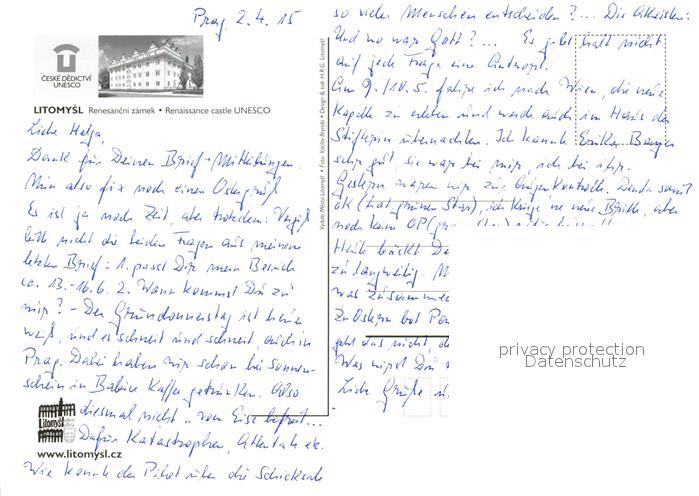 Prag 2.4.15
ČESKÉ DĚDICTVÍ
UNESCO
LITOMYŠL Renesanční zámek • Renaissance castle UNESCO
Liebe Helga,
Dank für Deinen Brief + Mitteilungen.
Nun also fix noch einen Ostergruß
Es ist ja noch Zeit, aber trotzdem. Vergiß
bitte nicht die beiden Fragen aus meinem
letzten Brief: 1. passt Dir mein Besuch
ca. 13.-16.6. 2. Wann kommst Du zu
mir? - Der Gründonnerstag ist heuer
weiß, und es schneit und schneit, auch in
Prag. Dabei haben wir schon bei Sonnen-
schein in Babice Kaffee getrunken. Also
diesmal nicht "vom Eise befreit...
Dafür Katastrophen, Attentate etc.
Wie konnte der Pilot über die Schicksale
Litomyšl
www.litomysl.cz
so vieler Menschen entscheiden?... Die Atheisten:
Und wo war Gott?... Es gibt halt nicht
auf jede Frage eine Antwort.
Am 9./10.5. fahre ich nach Wien, die neue
Kapelle zu erleben und werde auch im Haus der
Stifterin übernachten. Ich kannte Erika
sehr gut sie war bei mir, ich bei ihr.
Gestern waren wir zur Augenkontrolle. Danda soweit
OK (hat grünen Star), ich kriege 'ne neue Brille, aber
noch keine OP
Heute bäckt
zu langweilig.
was zusammen
Zu Ostern hat
geht das nicht
Was wirst Du
Liebe Grüße
privacy protection
Datenschutz